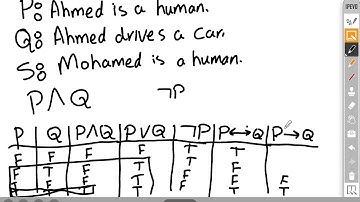 P: Ahmed is a human.
Q: Ahmed drives a car.
S: Mohamed is a human.
P∧Q ¬P
P Q P∧Q P∨Q ¬P P↔Q P→Q
F F F F T T
F T F T T F
T F F T F F F
T T T T F T T
IPEVO